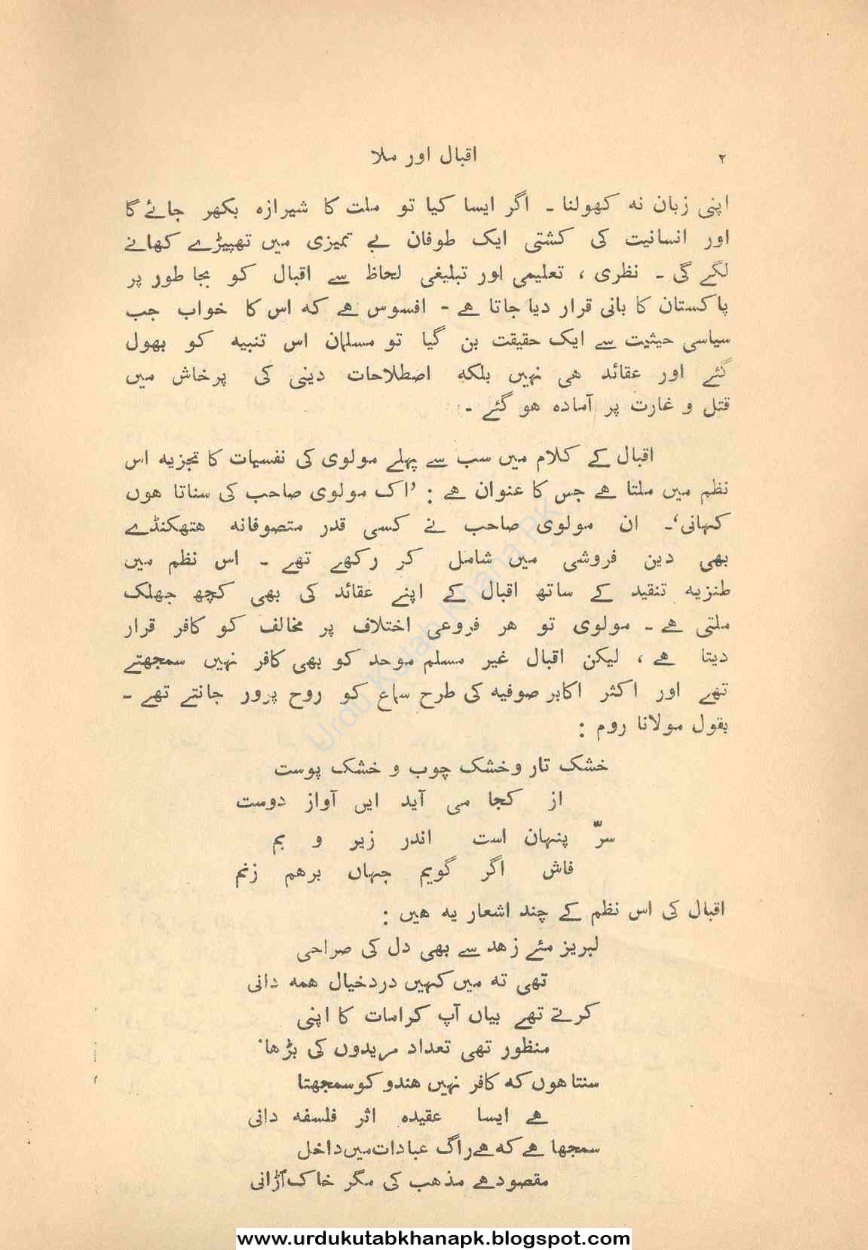 ۲
اقبال اور ملا
اپنی زبان نہ کھولنا ۔ اگر ایسا کیا تو ملت کا شیرازہ بکھر جائے گا
اور انسانیت کی کشتی ایک طوفان بے تمیزی میں تھپیڑے کھانے
لگے گی ۔ نظری ، تعلیمی اور تبلیغی لحاظ سے اقبال کو بجا طور پر
پاکستان کا بانی قرار دیا جاتا ہے ۔ افسوس ہے کہ اس کا خواب جب
سیاسی حیثیت سے ایک حقیقت بن گیا تو مسلمان اس تنبیہ کو بھول
گئے اور عقائد ہی نہیں بلکہ اصطلاحات دینی کی پرخاش میں
قتل و غارت پر آمادہ ہو گئے ۔
اقبال کے کلام میں سب سے پہلے مولوی کی نفسیات کا تجزیہ اس
نظم میں ملتا ہے جس کا عنوان ہے : ’اک مولوی صاحب کی سناتا ہوں
کہانی‘۔ ان مولوی صاحب نے کسی قدر متصوفانہ ہتھکنڈے
بھی دین فروشی میں شامل کر رکھے تھے ۔ اس نظم میں
طنزیہ تنقید کے ساتھ اقبال کے اپنے عقائد کی بھی کچھ جھلک
ملتی ہے ۔ مولوی تو ہر فروعی اختلاف پر مخالف کو کافر قرار
دیتا ہے ، لیکن اقبال غیر مسلم موحد کو بھی کافر نہیں سمجھتے
تھے اور اکثر اکابر صوفیہ کی طرح سماع کو روح پرور جانتے تھے ۔
بقول مولانا روم :
خشک تار و خشک چوب و خشک پوست
از کجا می آید ایں آواز دوست
سرّ پنہان است اندر زیر و بم
فاش اگر گویم جہاں برہم زنم
اقبال کی اس نظم کے چند اشعار یہ ہیں :
لبریز مئے زہد سے بھی دل کی صراحی
تھی تہ میں کہیں درد خیال ہمہ دانی
کرتے تھے بیاں آپ کرامات کا اپنی
منظور تھی تعداد مریدوں کی بڑھا
سنتا ہوں کہ کافر نہیں ہندو کو سمجھتا
ہے ایسا عقیدہ اثر فلسفہ دانی
سمجھا ہے کہ ہے راگ عبادات میں داخل
مقصود ہے مذہب کی مگر خاک اڑانی
Urdu Kutab Khana PK
www.urdukutabkhanapk.blogspot.com